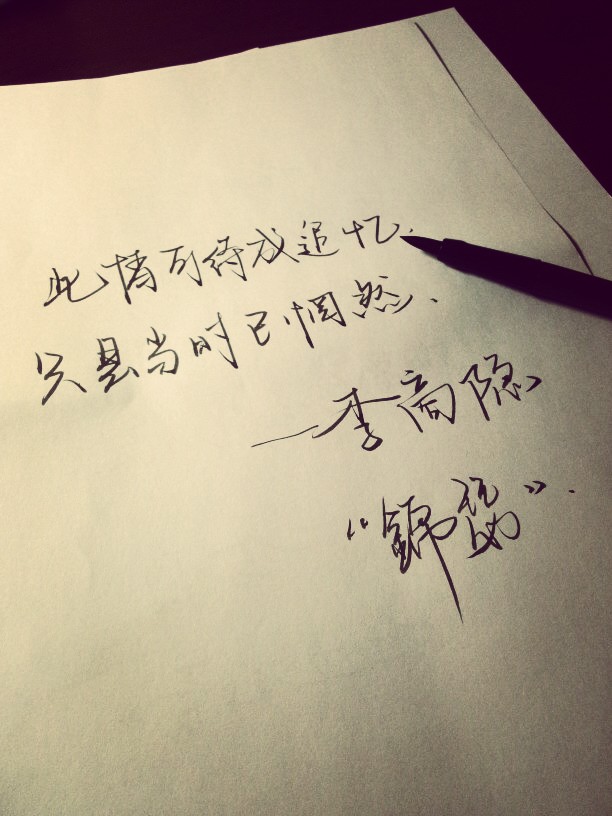 此情可待成追忆.
只是当时已惘然.
—李商隐
“錦瑟”.